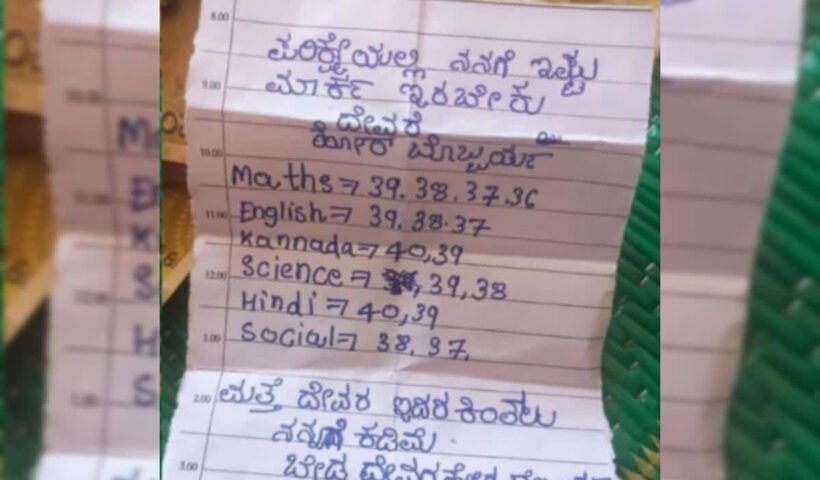 8.00
ಪರಿಕ್ಷೆಯಲ್ಲಿ ನನಗೆ ಇಷ್ಟು
9.00
ಮಾರ್ಕ ಇರಬೇಕು
ದೇವರೆ
10.00
Maths = 39. 38. 37. 36
11.00
English = 39. 38. 37
Kannada = 40, 39
12.00
Science = , 39, 38
Hindi = 40, 39
1.00
Social = 38. 37.
2.00
ಮತ್ತೆ ದೇವರ ಇದರಕಿಂತಲು
ನನ್ನಗೆ ಕಡಿಮೆ
3.00
ಬೇಡ